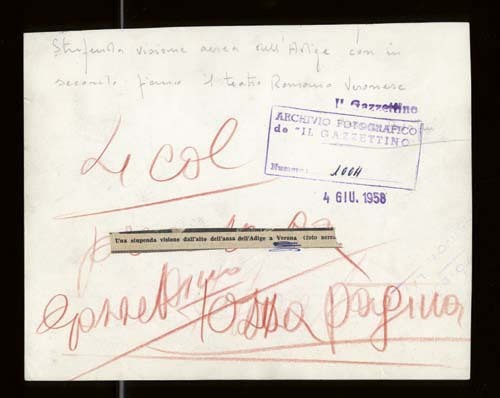 Stupenda visione aerea sull'Adige con in
secondo piano il teatro Romano Veronese
Il Gazzettino
ARCHIVIO FOTOGRAFICO
de "IL GAZZETTINO
Numero 1004
4 GIU. 1958
4 col
Una stupenda visione dall'alto dell'ansa dell'Adige a Verona (foto aerea
pagina